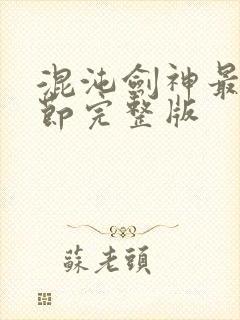 混沌劍神最
節完整版
蘇老頭